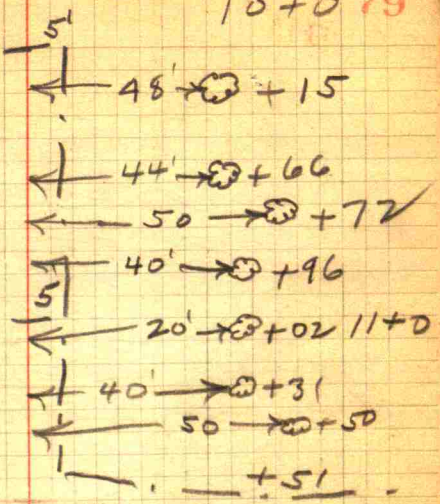 10+0 79
5'
48' +15
44' +66
50 +72
40' +96
5
20' +02 11+0
40' +31
50 +50
+51